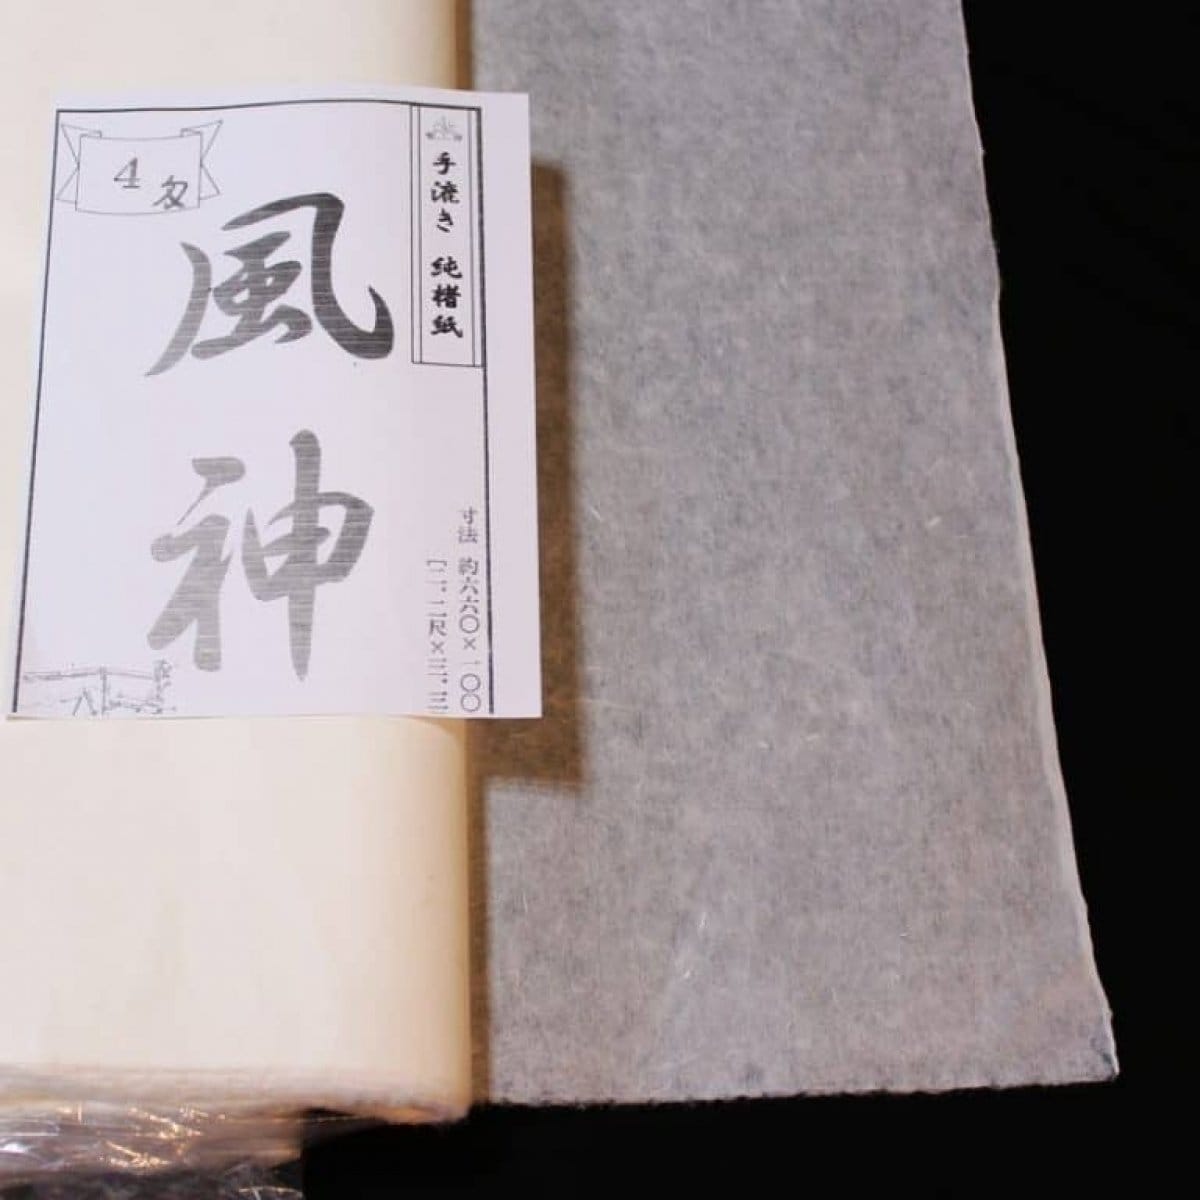 手漉き 純楮紙
4 匁
風神
寸法 約六六〇×一〇〇
〔二.二尺×三.三